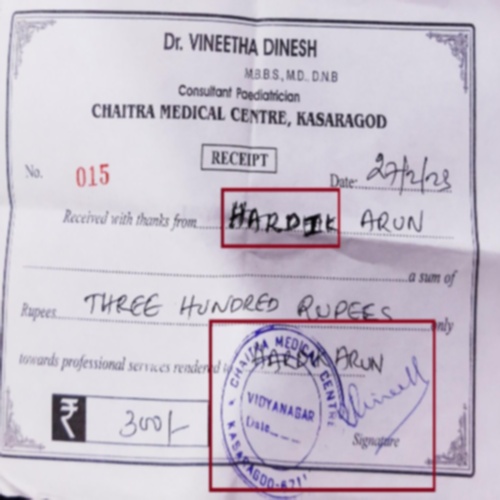 Dr. VINEETHA DINESH
M.B.B.S., M.D., D.N.B
Consultant Paediatrician
CHAITRA MEDICAL CENTRE, KASARAGOD
RECEIPT
No. 015
Date: 27/2/23
Received with thanks from HARDIK ARUN
a sum of
Rupees THREE HUNDRED RUPEES only
towards professional services rendered to HARDIK ARUN
CHAITRA MEDICAL CENTRE
VIDYANAGAR
Date
KASARAGOD-6711
₹ 300/-
Signature